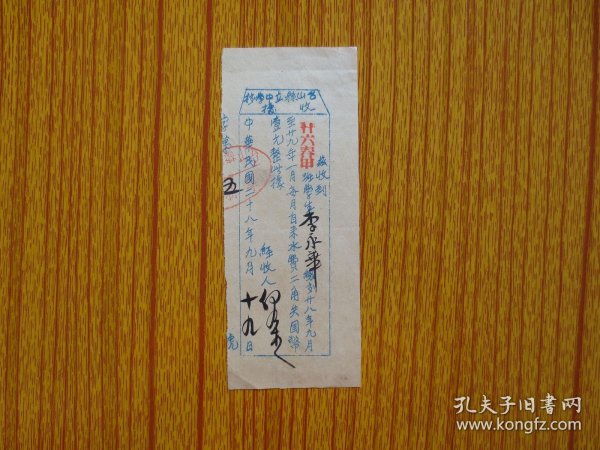 台山縣立中學校
收據
茲收到
廿六春甲班學生李永華繳到廿八年九月
至廿九年一月每月自来水費二角共国幣
壹元整此據
經收人
中華民國二十八年九月十九日
字第
五
號
孔夫子旧書网
www.kongfz.com